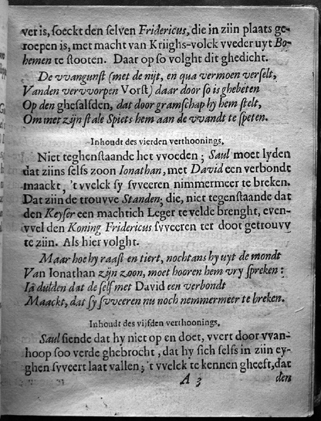 ver is, soeckt den selven Fridericus, die in zijn plaats ge-
roepen is, met macht van Kriighs-volck vveder uyt Bo-
hemen te stooten. Daar op so volght dit ghedicht.
De vvangunst (met de nijt, en qua vermoen verselt,
Vanden vervvorpen Vorst) daar door so is ghebeten
Op den ghesalfden, dat door gramschap hy hem stelt,
Om met zijn stale Spiets hem aan de vvandt te speten.
Inhoudt des vierden verthoonings.
Niet teghenstaande het vvoeden; Saul moet lyden
dat zijns selfs zoon Ionathan, met David een verbondt
maackt, 't vvelck sy svveren nimmermeer te breken.
Dat zijn de trouvve Standen; die, niet teghenstaande dat
den Keyser een machtich Leger te velde brenght, even-
vvel den Koning Fridericus svveeren tot doot getrouvv
te zijn. Als hier volght.
Maar hoe hy raast en tiert, nochtans hy uyt de mondt
Van Ionathan zijn zoon, moet hooren hem vry spreken:
Ia dulden dat de self met David een verbondt
Maackt, dat sy svveeren nu noch nemmermeer te breken.
Inhoudt des vijfden verthoonings.
Saul siende dat hy niet op en doet, vvert door vvan-
hoop soo verde ghebrocht, dat hy sich selfs in zijn ey-
ghen svveert laat vallen; 't vvelck te kennen gheeft, dat
A 3 den